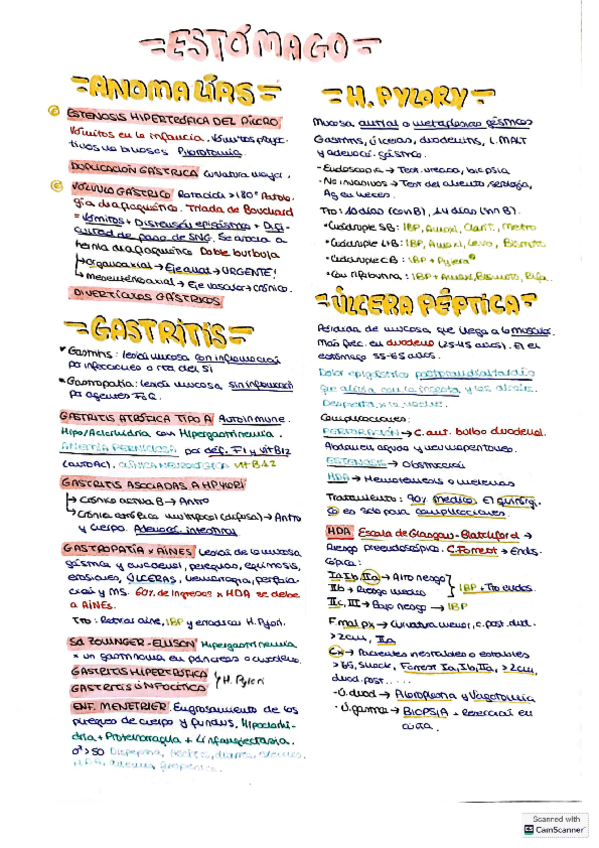 =ESTÓMAGO=
=ANOMALÍAS=
ESTENOSIS HIPERTRÓFICA DEL PÍLORO
Vómitos en la infancia. Vómitos proyec-
tivos no biliosos. Pilorotomía.
DUPLICACIÓN GÁSTRICA curvatura mayor.
VÓLVULO GÁSTRICO Rotación >180º Patolo-
gía diafragmática. Triada de Bouchard
= Vómitos + Distensión epigástrica + Difi-
cultad de paso de SNG. Se asocia a
hernia diafragmática. Doble burbuja
↳ organoaxial → Eje axial → URGENTE!
↳ mesentericoaxial → Eje vascular → crónico.
DIVERTÍCULOS GÁSTRICOS
=GASTRITIS=
Gastritis: lesión mucosa con inflamación
por infecciones o rta del SI
Gastropatía: lesión mucosa, sin inflamación
por agentes FxQ.
GASTRITIS ATRÓFICA TIPO A Autoinmune.
Hipo/Aclorhidria con Hipergastrinemia.
ANEMIA PERNICIOSA por def. FI y vit B12
(autoAc). CLÍNICA NEUROLÓGICA vit B12
GASTRITIS ASOCIADAS A HPYLORI
↳ Crónica activa B → Antro
↳ Crónica atrófica multifocal (difusa) → Antro
y cuerpo. Adenoca. intestinal
GASTROPATÍA x AINES Lesión de la mucosa
gástrica y duodenal, petequias, equimosis,
erosiones, ÚLCERAS, hemorragia, perfora-
ción y MS. 60% de ingresos x HDA se debe
a AINES.
Tto: Retirar aine, IBP y erradicar H. Pylori.
Sd ZOLLINGER-ELLISON Hipergastrinemia
x un gastrinoma en páncreas o duodeno.
GASTRITIS HIPERTRÓFICA
GASTRITIS LINFOCÍTICA
H. Pylori
ENF. MENETRIER. Engrosamiento de los
pliegues de cuerpo y fundus, Hipoclorhi-
dria + Proteinorragia + Linfangiectasia.
♂ >50 Dispepsia,
=H. PYLORY=
Mucosa antral o metaplásica gástrica
Gastritis, úlceras, duodenitis, L. MALT
y adenoca. gástrico.
- Endoscopia → Test. ureasa, biopsia
- No invasivos → Test del aliento, serología,
Ag en heces.
Tto: 10 días (con B), 14 días (sin B).
• Cuádruple SB: IBP, Amoxi, Clarit, Metro
• Cuádruple LB: IBP, Amoxi, Levo, Bismuto
• Cuádruple CB: IBP + Pylera®
• Con rifabutina: IBP + Amoxi, Bismuto, Rifa.
=ÚLCERA PÉPTICA=
Pérdida de mucosa, que llega a la muscular.
Más frec. en duodeno (25-45 años). El el
estómago 55-65 años.
Dolor epigástrico postprandial tardío
que alivia con la ingesta y los alcalis.
Despierta x la noche.
Complicaciones:
PERFORACIÓN → C. ant. bulbo duodenal.
Abdomen agudo y neumoperitoneo.
ESTENOSIS → Obstrucción
HDA → Hematemesis o melenas
Tratamiento: 90% médico. El quirúrgi-
co es solo para complicaciones.
HDA Escala de Glasgow-Blatchford →
Riesgo preendoscópico. C. Forrest → Endos-
cópica:
Ia, Ib, IIa → Alto riesgo
IIb → Riesgo medio
IBP + Tto endos.
IIc, III → Bajo riesgo → IBP
F. mal px → Curvatura menor, c. post. duod.
>2cm, IIa
Cx → Pacientes inestables o estables
>65, Shock, Forrest Ia, Ib, IIa, >2cm,
duod. post.....
- Ú. duod → Piloroplastia y Vagotomía
- Ú. gástrica → BIOPSIA + Resección en
cuña.
Scanned with
CamScanner